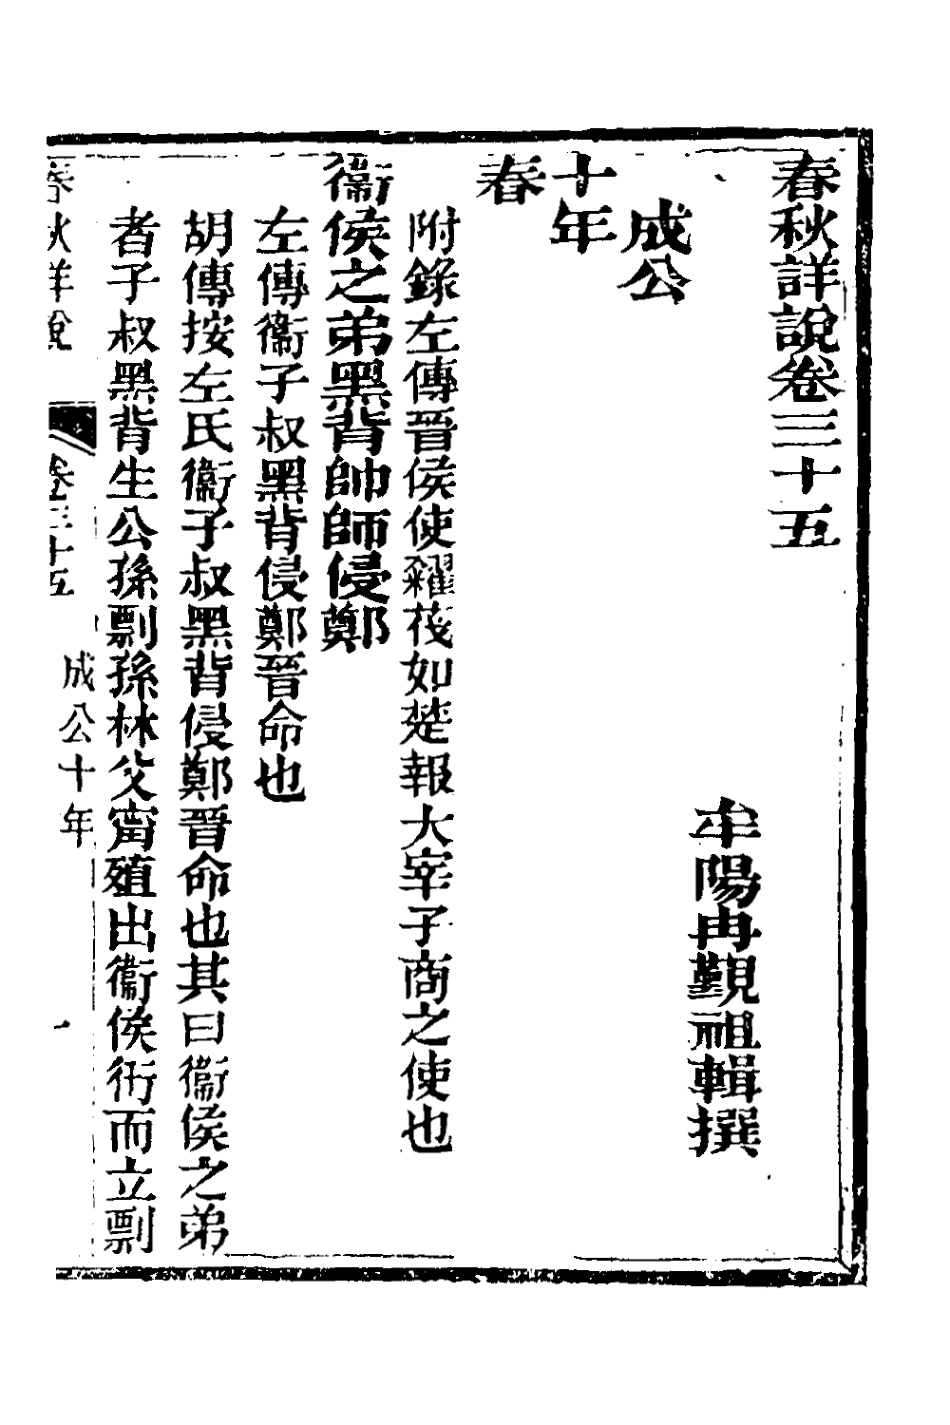 春秋詳說卷三十五
牟陽冉覲祖輯撰
成公
十年
春
附錄左傳晉侯使糴茷如楚報大宰子商之使也
衞侯之弟黑背帥師侵鄭
左傳衞子叔黑背侵鄭晉命也
胡傳按左氏衞子叔黑背侵鄭晉命也其曰衞侯之弟
者子叔黑背生公孫剽孫林父甯殖出衞侯衎而立剽
春秋詳說 卷三十五 成公十年 一